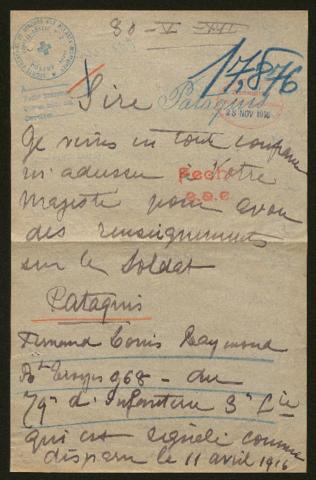 30 - V - XVI
17,876
Sire
Pataquis
25 NOV 1916
Je viens en toute confiance
m'adresser à Votre
Majesté pour avoir
des renseignements
sur le Soldat
Pataquis
Fernand Louis Raymond
968 - du
79e d'Infanterie 3e Cie
qui est signalé comme
disparu le 11 avril 1916